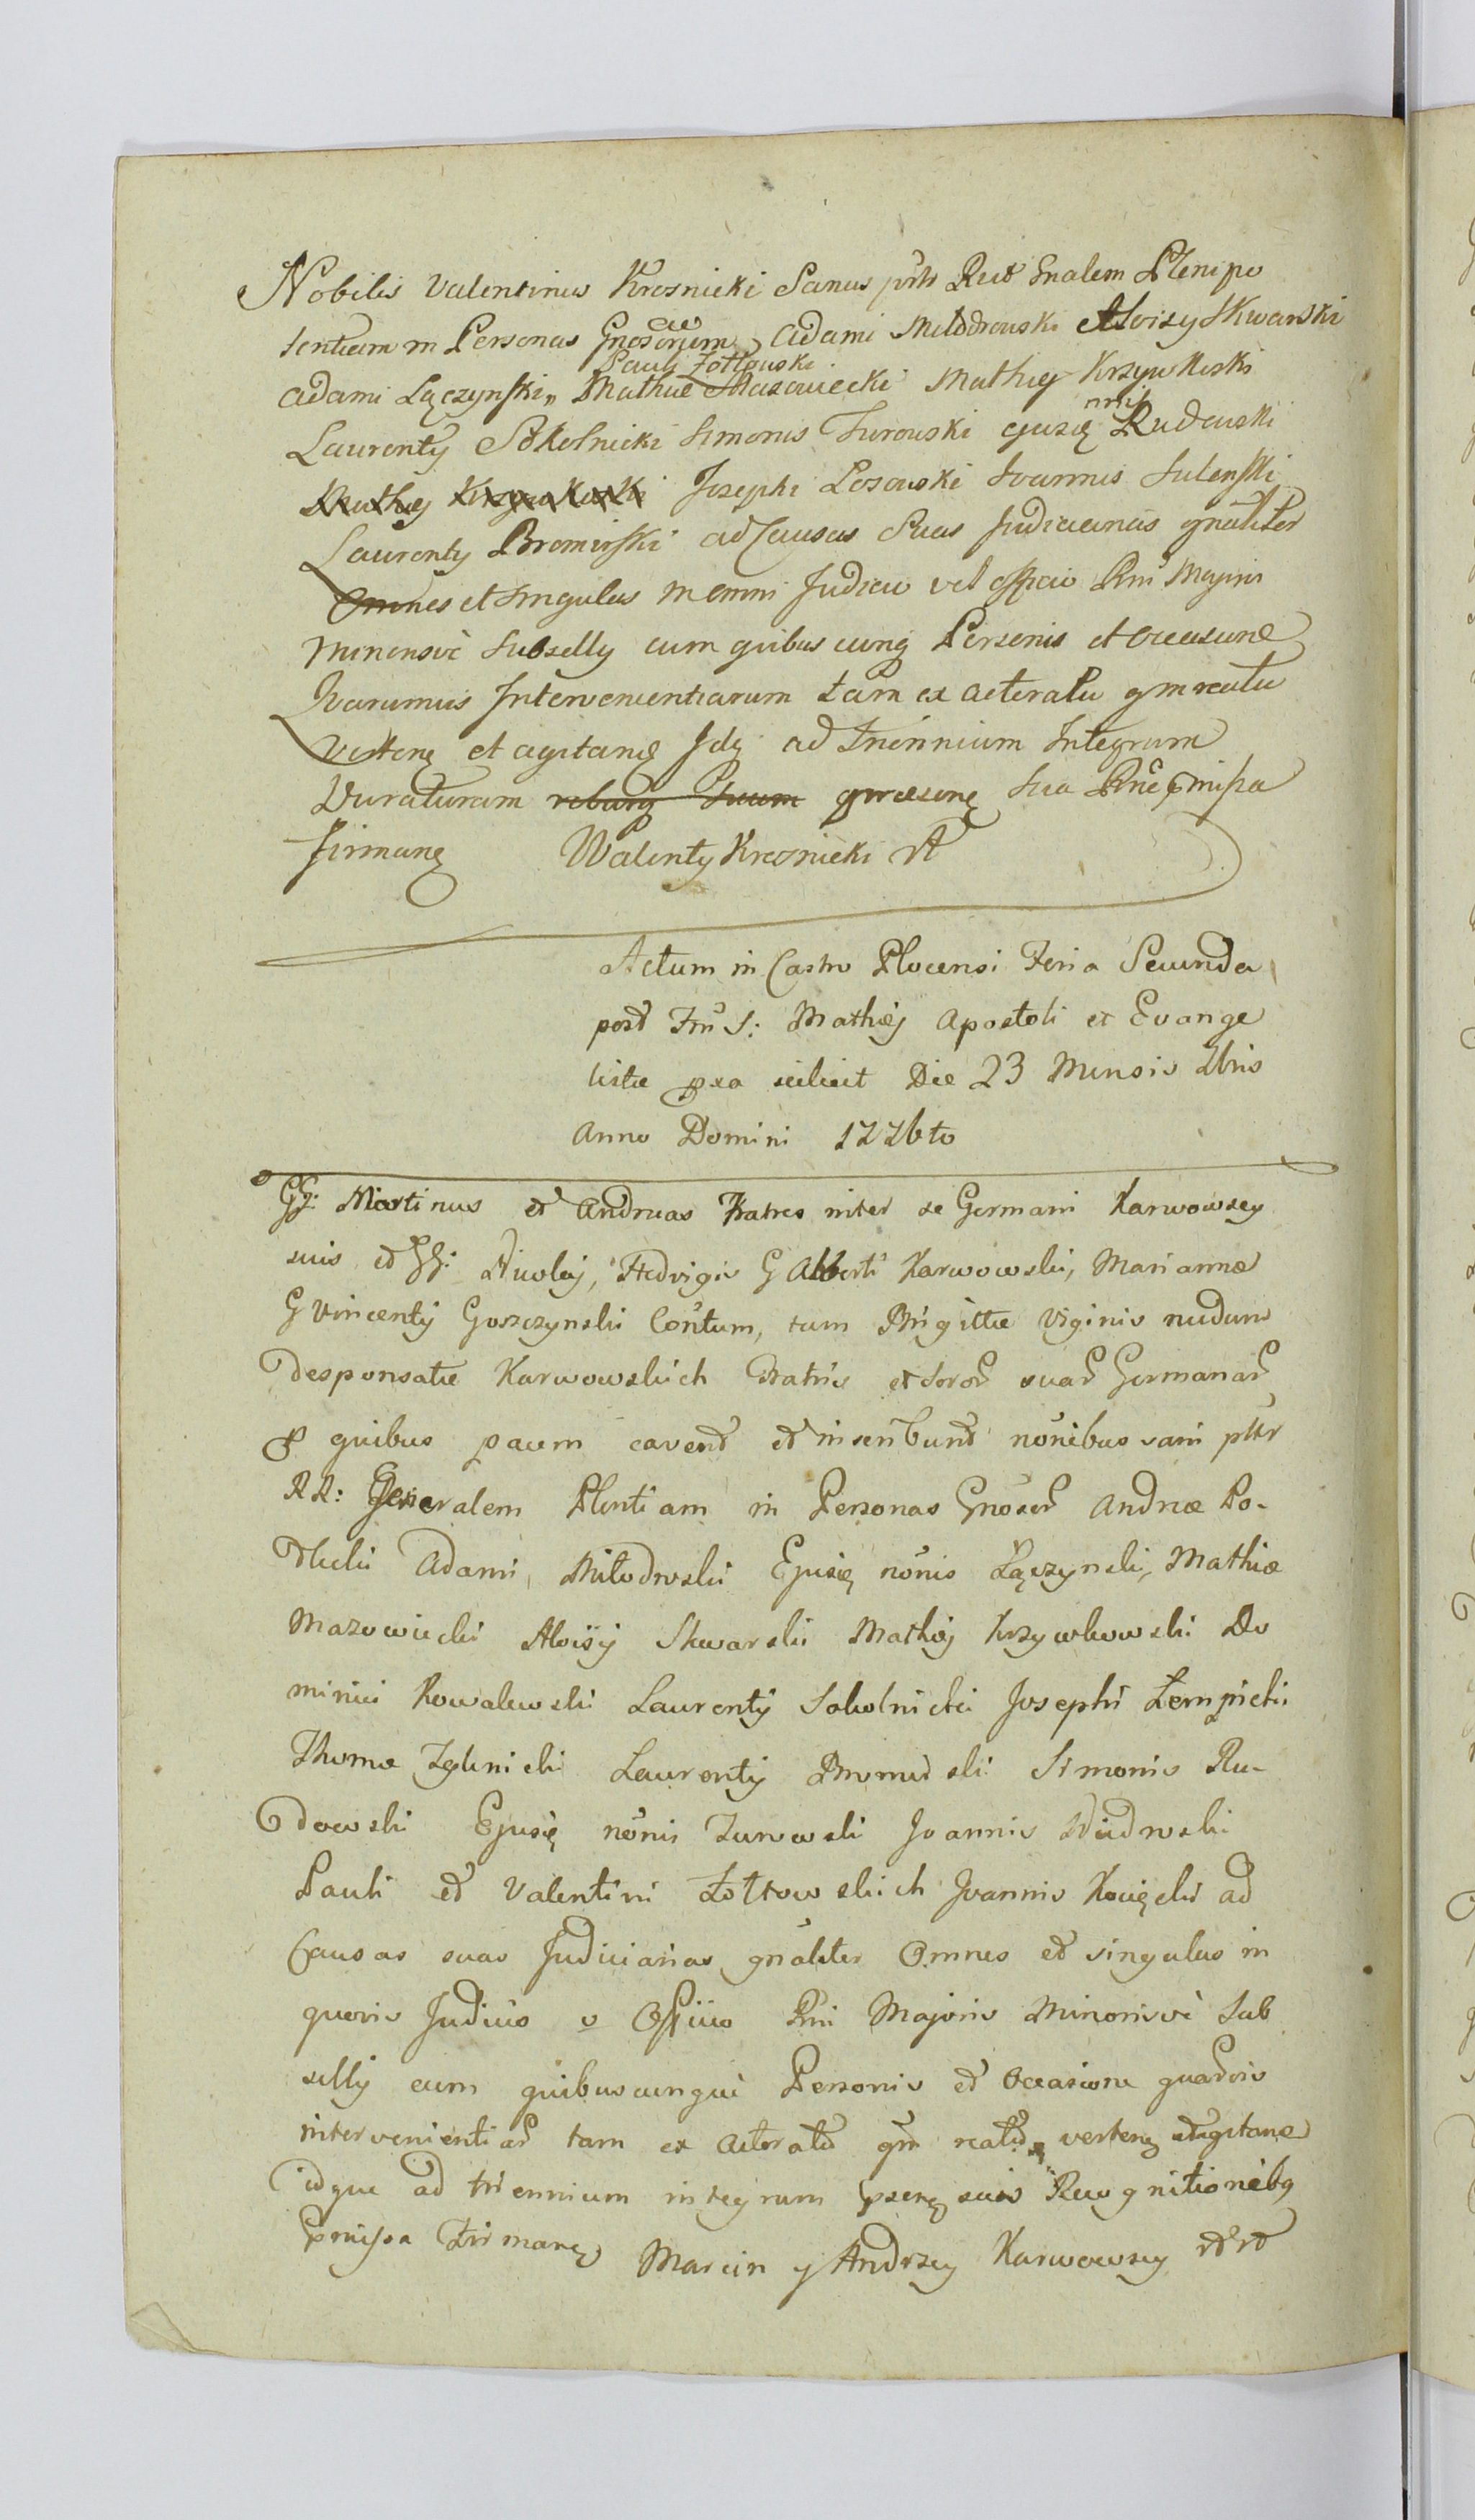 Nobilis Valentinus Kresnicki Sanus prts Reit Gnalem Plenipo
tentiam in Personas Gnosorum Adami Miłodrouski Aloisy Skwarski
Pauli Żołtouski
Adami Łączynski, Mathiæ Mazowiecki Mathiey Krzywkoski
nnis
Laurenty Sokolnicki Simonis Turouski ejusę Rudouski
Josephi Losouski Ioannis Sulenski
Laurenty Bromirski ad Causas Suas Judiciarias gnaliter
Omnes et Singulas in omni Judicio vel officio Rni Majoris
Minorisve Subselly cum quibus cunq Personis et occasione
Quarumvis Intervenientiarum tam ex actoratu qm reatu
Verteną et agitaną Idq ad Triennium Integrum
Duraturam Sua Rne pmissa
Firmaną Walenty Kresnicki
Actum in Castro Plocensi Feria Secunda
post Ftm S: Mathiej Apostoli et Evange
listæ pxa scilicet Die 23 Mensis 7bris
Anno Domini 1776to
GG: Martinus et Andreas Fratres inter se Germani Karwowscy
suis et GG: Nicolaj, Hedvigis G Alberti Karwowski, Mariannæ
G Vincentij Goszczynski Contum, tum Brigittæ Virginis nudum
desponsatæ Karwowskich Fratris et Soror suar Germanar
p quibus pacem cavent et inscribunt nonibus sani pttr
RR: Generalem Plentiam in Personas Gnosor Andreæ Po-
dlecki Adami Miłodroski Ejusię nonis Łączynski, Mathiæ
Mazowiecki Aloisij Skwarski Mathiej Krzywkowski Do
minici Kowalewski Laurentij Sokolnicki Josephi Łempicki
Thomæ Zglinicki Laurentij Bromirski Simonis Ru-
dowski Ejusię nonis Turowski Joannis
Pauli et Valentini Żołtowskich Joannis ad
Causas suas Judiciarias gnaliter Omnes et singulas in
quovis Judicio v Officio Rni Majoris Minorisve Sub
selly cum quibuscunque Personis et Occasione quarvis
intervenientiar tam ex actoratu qm reatu verteną et agitaną
idque ad triennium integrum psenę suis Recognitionibq
pmissa Firmaną Marcin y Andrzey Karwowscy